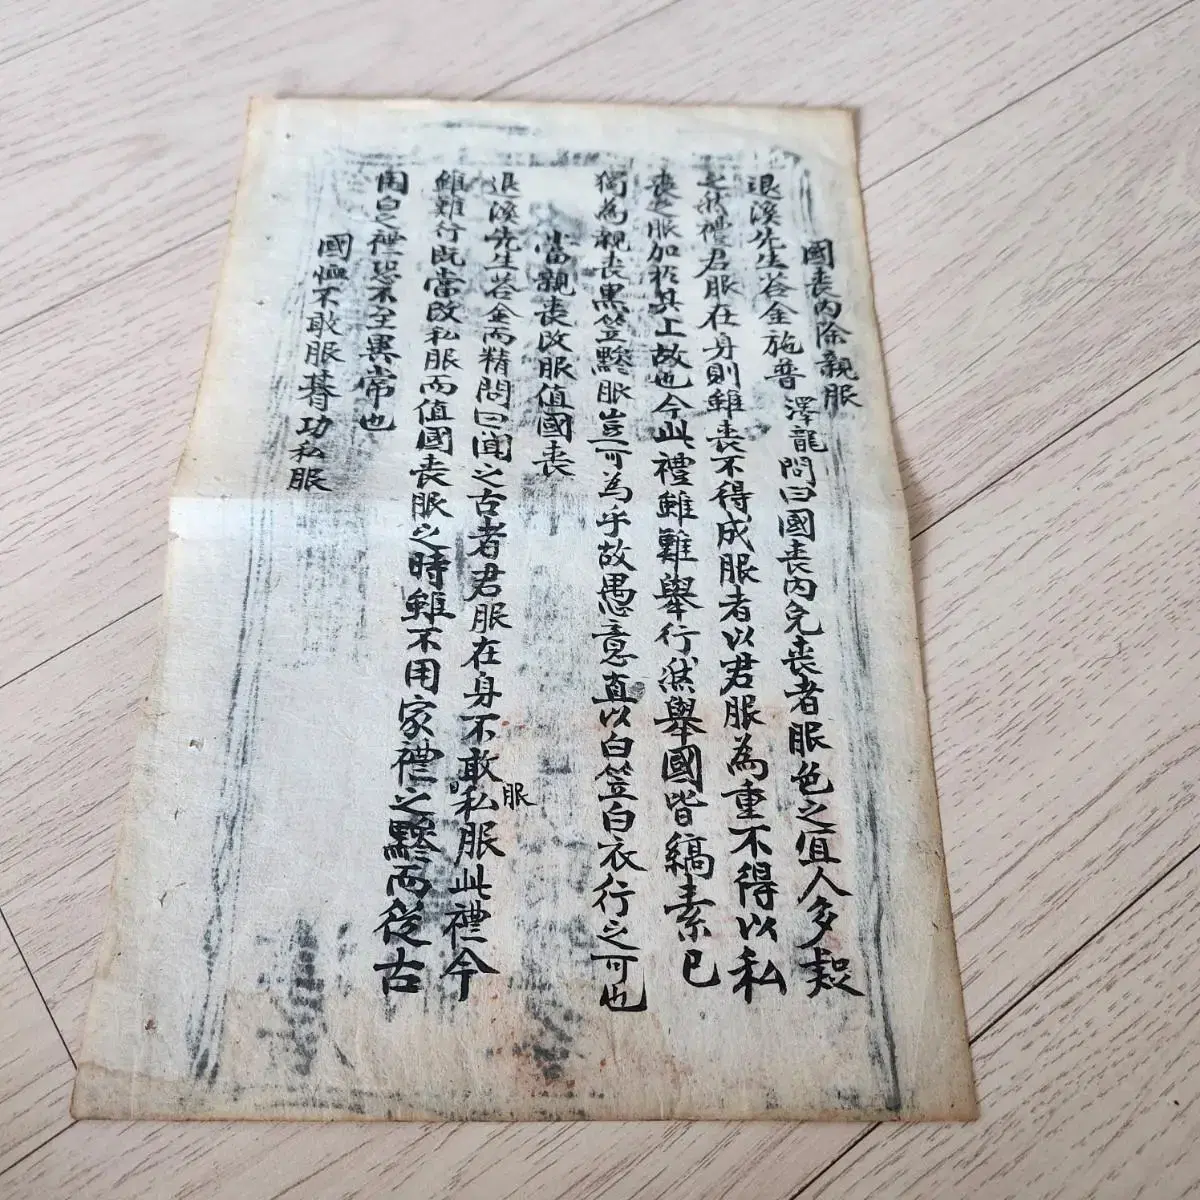 國喪內除親服
退溪先生答金施普澤龍問曰國喪內免喪者服色之宜人多疑
之然禮君服在身則雖喪不得成服者以君服為重不得以私
喪之服加於其上故也今此禮雖難舉行然舉國皆縞素已
獨為親喪黑笠黲服豈可為乎故愚意直以白笠白衣行之可也
當親喪改服值國喪
退溪先生答金而精問曰聞之古者君服在身不敢私服此禮今
服
雖難行既當改私服而值國喪服之時雖不用家禮之黲而從古
用白之禮恐不至異常也
國恤不敢服朞功私服